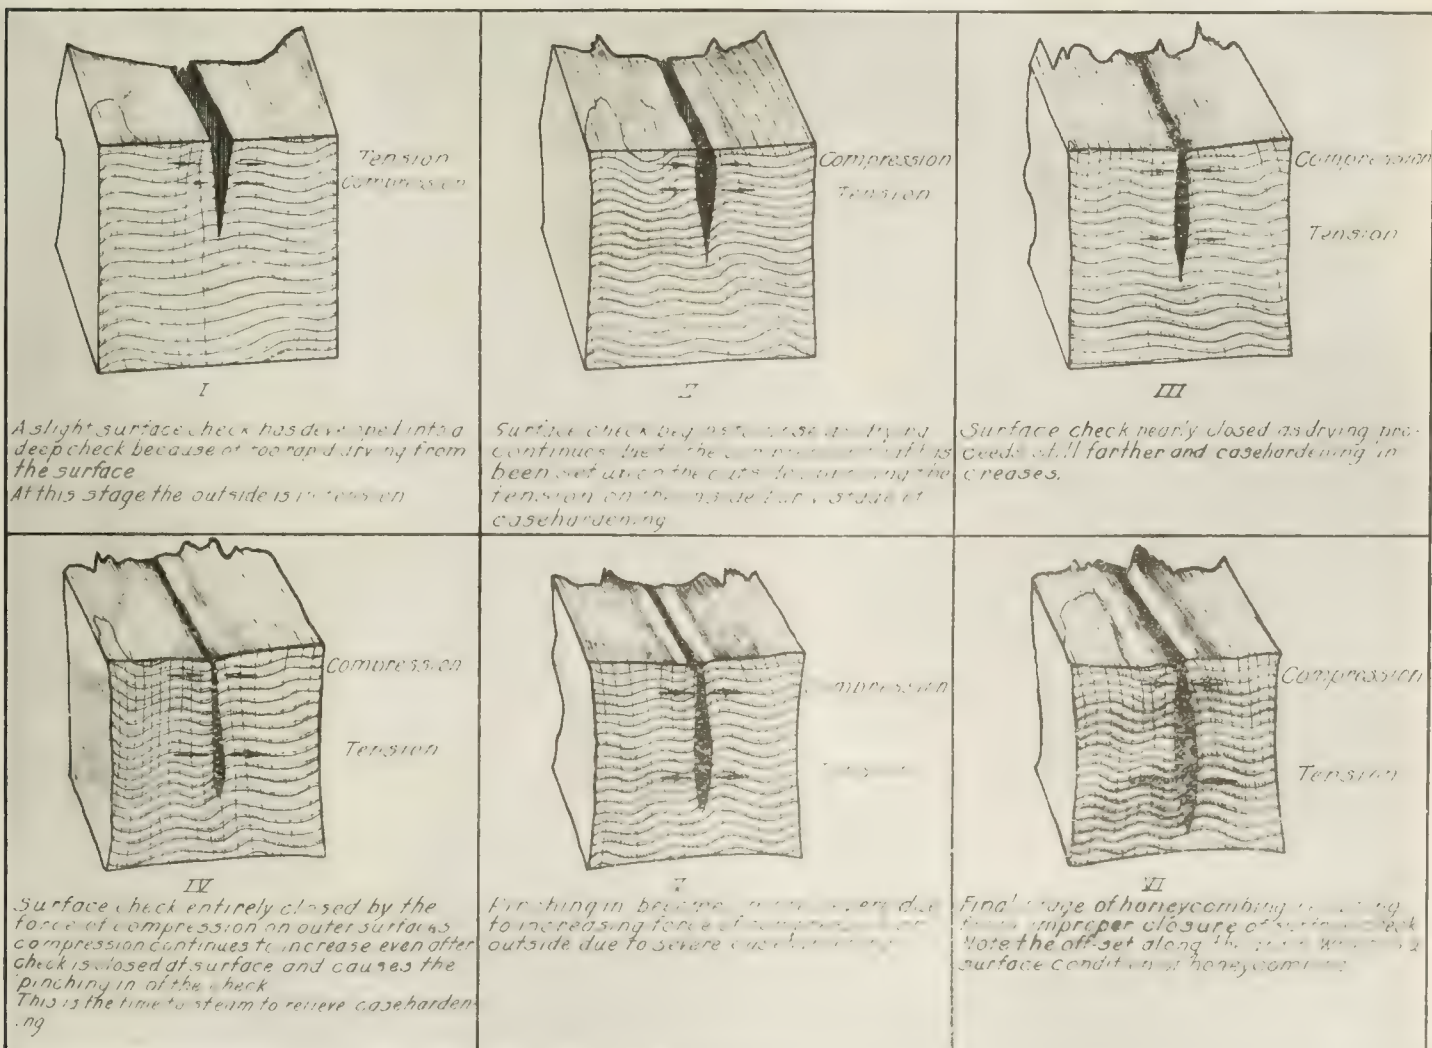 Tension
Compression
I
A slight surface check has developed into a
deep check because of too rapid drying from
the surface
At this stage the outside is in tension
Compression
Tension
II
Surface check begins to close as drying
continues
been set up on the outside the
tension on the inside Early stage of
casehardening
Compression
Tension
III
Surface check nearly closed as drying pro-
ceeds still farther and casehardening in
creases.
Compression
Tension
IV
Surface check entirely closed by the
force of compression on outer surfaces
compression continues to increase even after
check is closed at surface and causes the
pinching in of the check
This is the time to steam to relieve caseharden
ing
Compression
V
Pinching in
to increasing force of
outside due to severe
Compression
Tension
VI
Final stage of honeycombing
improper closure of surface check
Note the off-set along the
surface condition of honeycombing